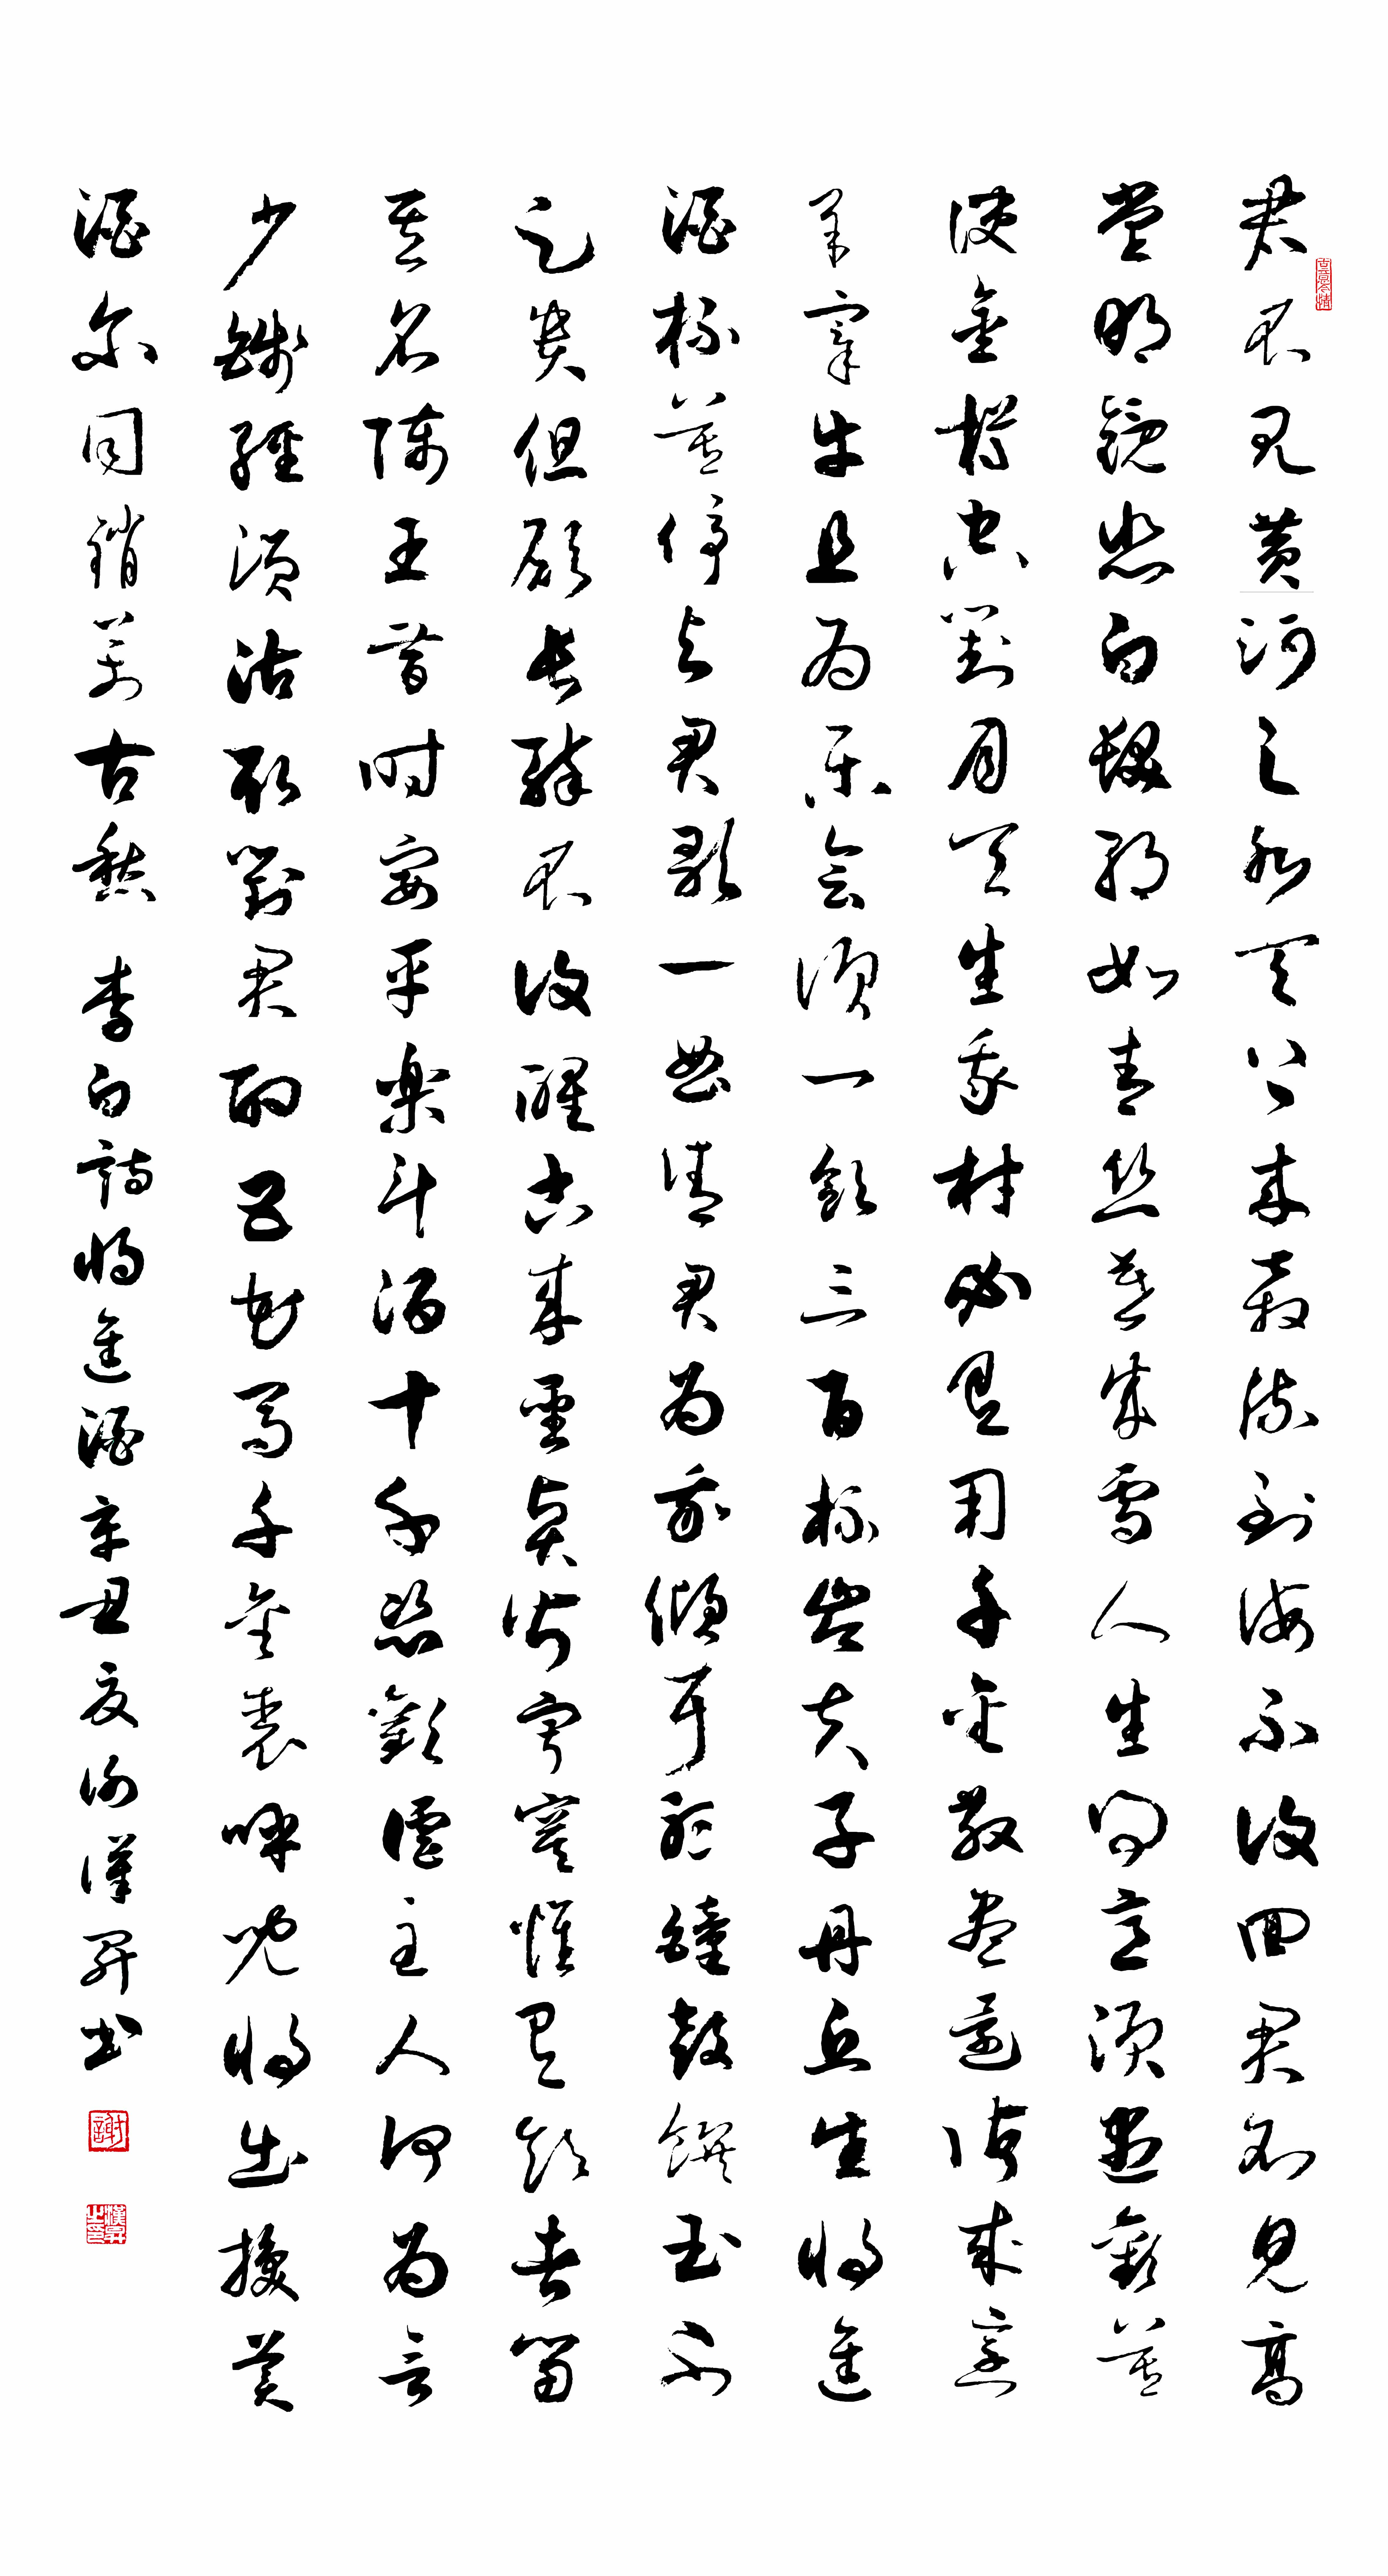 古意今情
君不見黃河之水天上來奔流到海不復回君不見高
堂明鏡悲白髮朝如青絲暮成雪人生得意須盡歡莫
使金樽空對月天生我材必有用千金散盡還復來烹
羊宰牛且為樂會須一飲三百杯岑夫子丹丘生將進
酒杯莫停與君歌一曲請君為我傾耳聽鐘鼓饌玉不
足貴但願長醉不復醒古來聖賢皆寂寞惟有飲者留
其名陳王昔時宴平樂斗酒十千恣歡謔主人何為言
少錢徑須沽取對君酌五花馬千金裘呼兒將出換美
酒尔同銷萬古愁 李白詩將進酒辛丑夏謝漢昇書
謝
漢昇之印